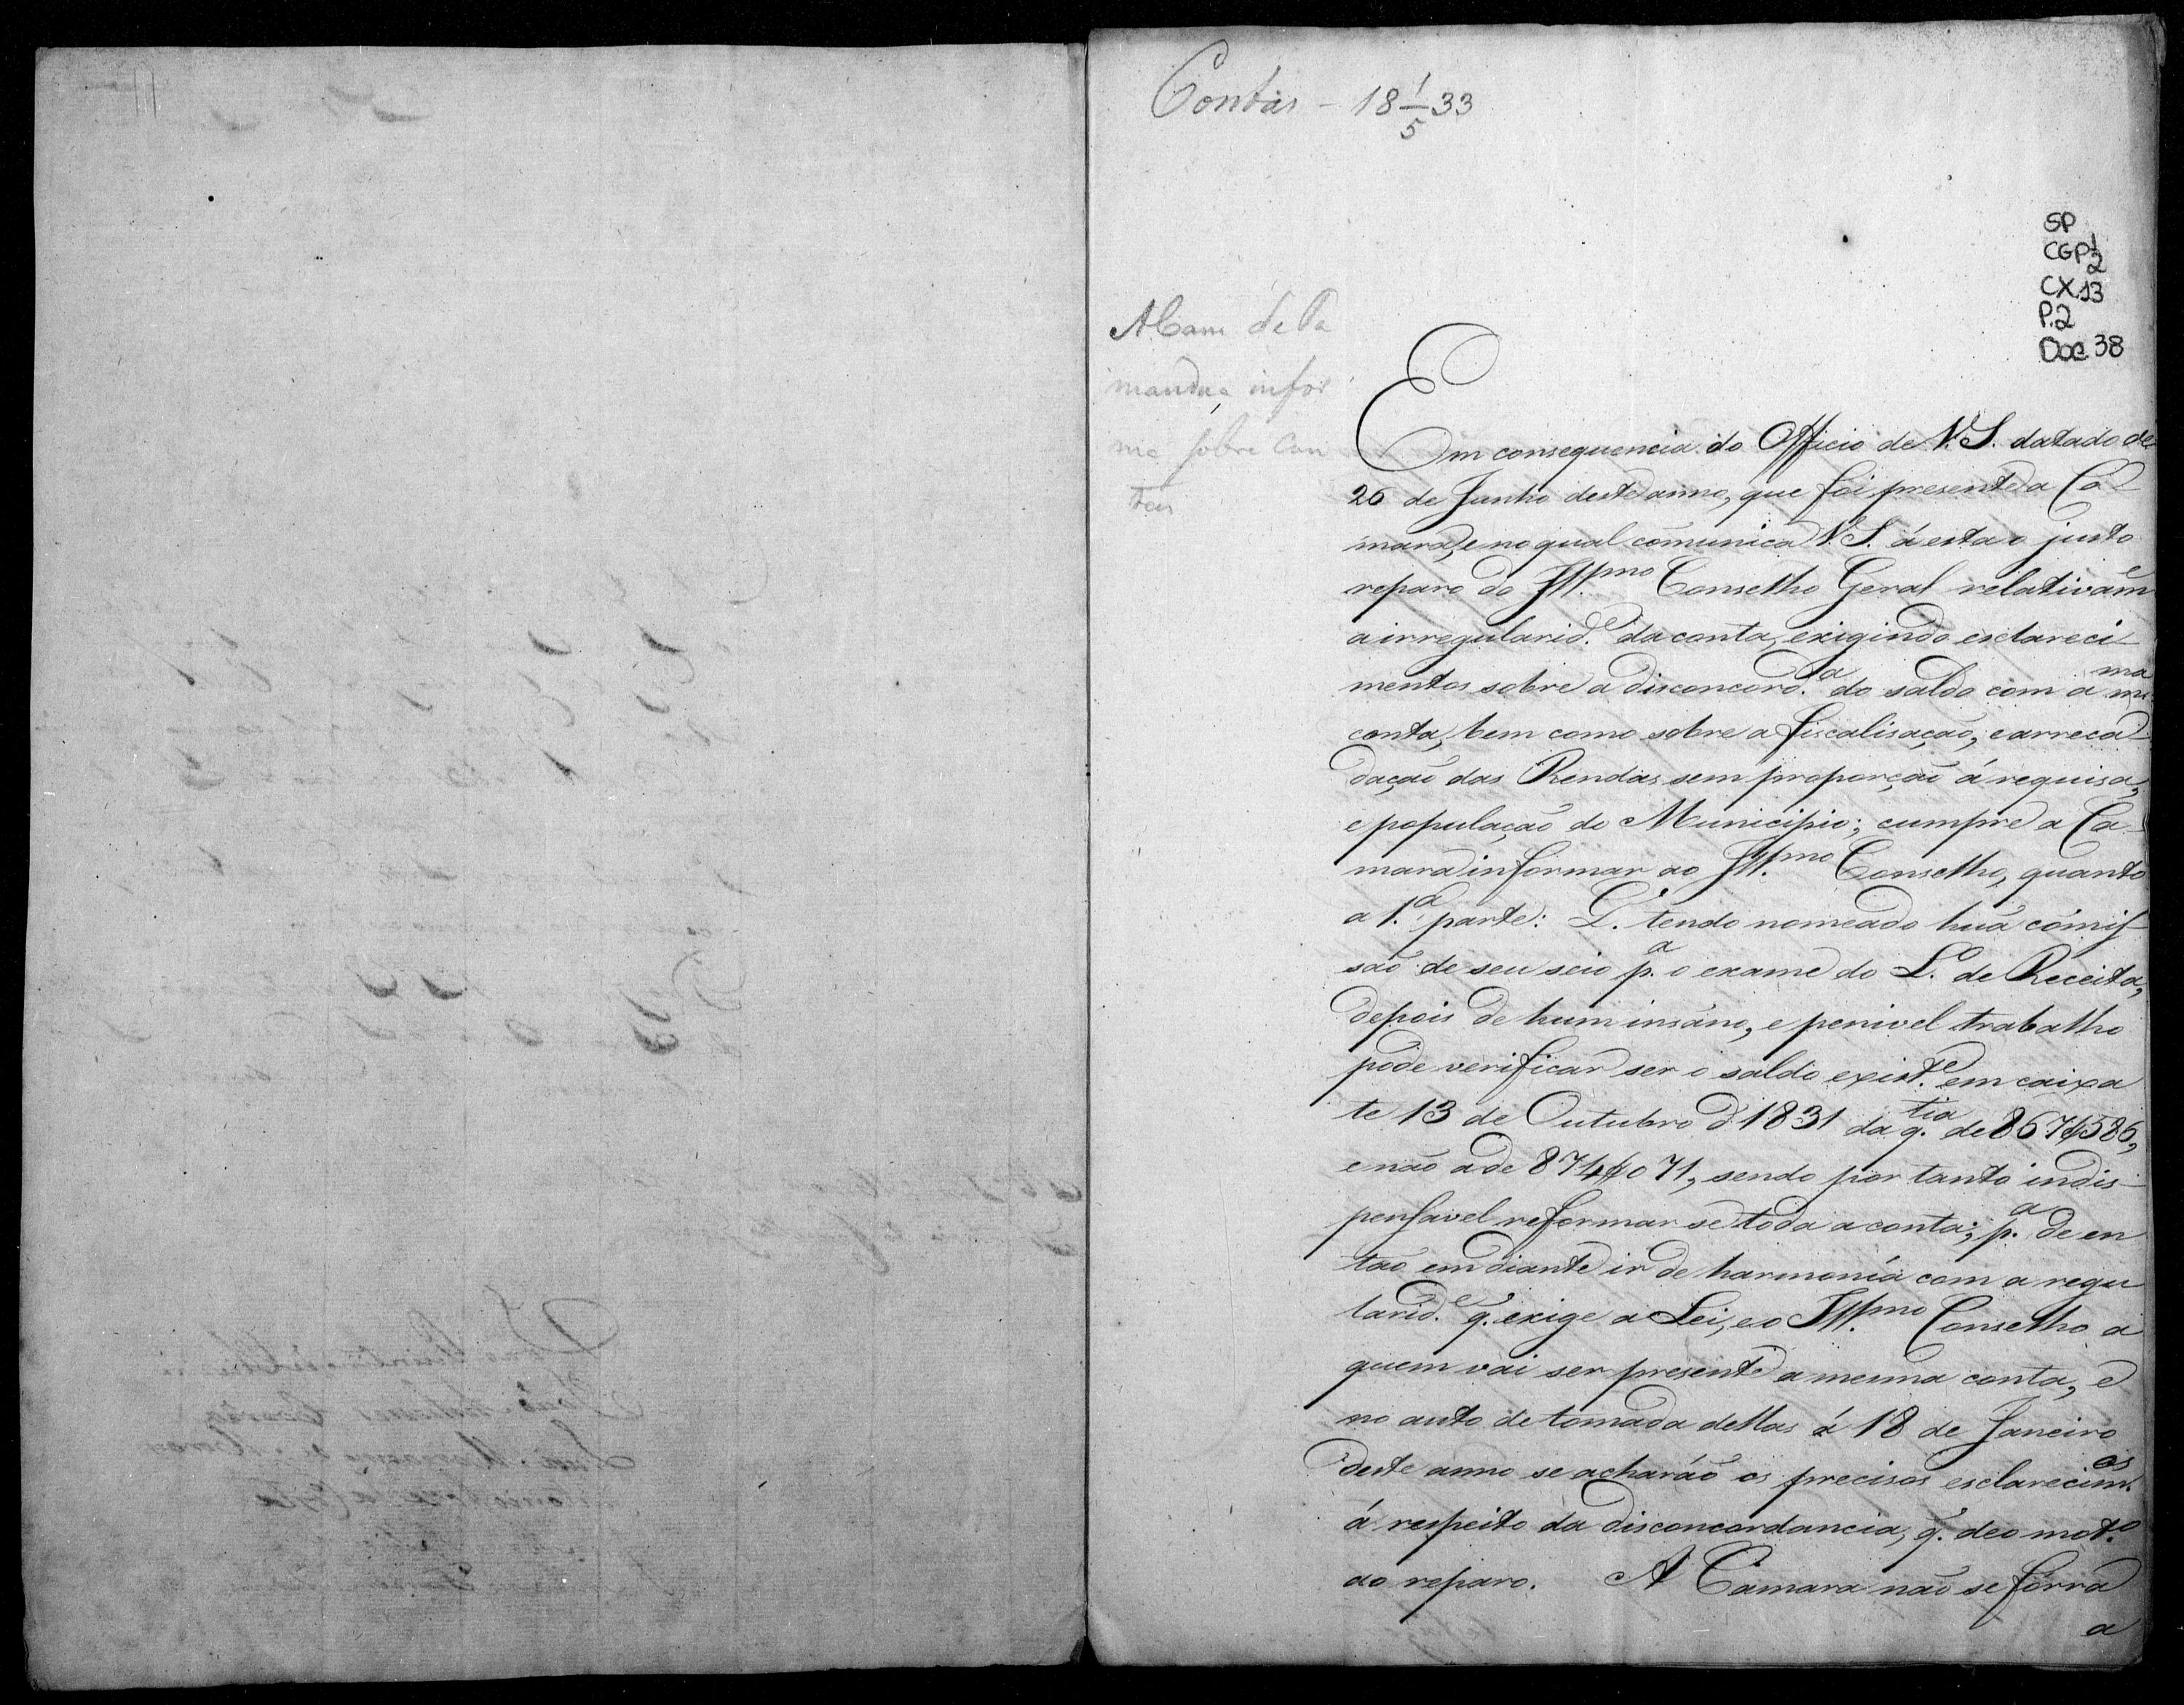 Contas - 18 1/5 33
SP
CGP 1/2
CX.13
P.2
Doc. 38
A Cam de Ta
mandua, infor
me sobre Con
tas
Em consequencia do Officio de V. S. datado de
26 de Junho deste anno, que foi presente a Ca
mara, e no qual cõmunica V. S. á esta o justo
reparo do Ill.mo Conselho Geral relativam.e
a irregularid.e da conta, exigindo esclareci
mentos sobre a disconcord.a do saldo com a m.ma
conta, bem como sobre a fiscalisação, e arreca
dação das Rendas sem proporção á requisa,
e população do Municipio; cumpre a Ca
mara informar ao Ill.mo Conselho, quanto
a 1.a parte: Q. tendo nomeado huã cómis
são de seu seio p.a o exame do L.o de Receita,
depois de hum insano, e penivel trabalho
pode verificar ser o saldo exist.e em caixa
te 13 de Outubro d'1831 da q.tia de 867$586,
e não a de 874$071, sendo por tanto indis
pensavel reformar se toda a conta; p.a de en
tão em diante ir de harmonía com a regu
larid.e q. exige a Lei, e o Ill.mo Conselho a
quem vai ser presente a mesma conta, e
no auto de tomada dellas á 18 de Janeiro
deste anno se acharáõ os precisos esclarecim.os
á respeito da disconcordancia, q. deo mot.o
ao reparo. A Camara não se fórra
a